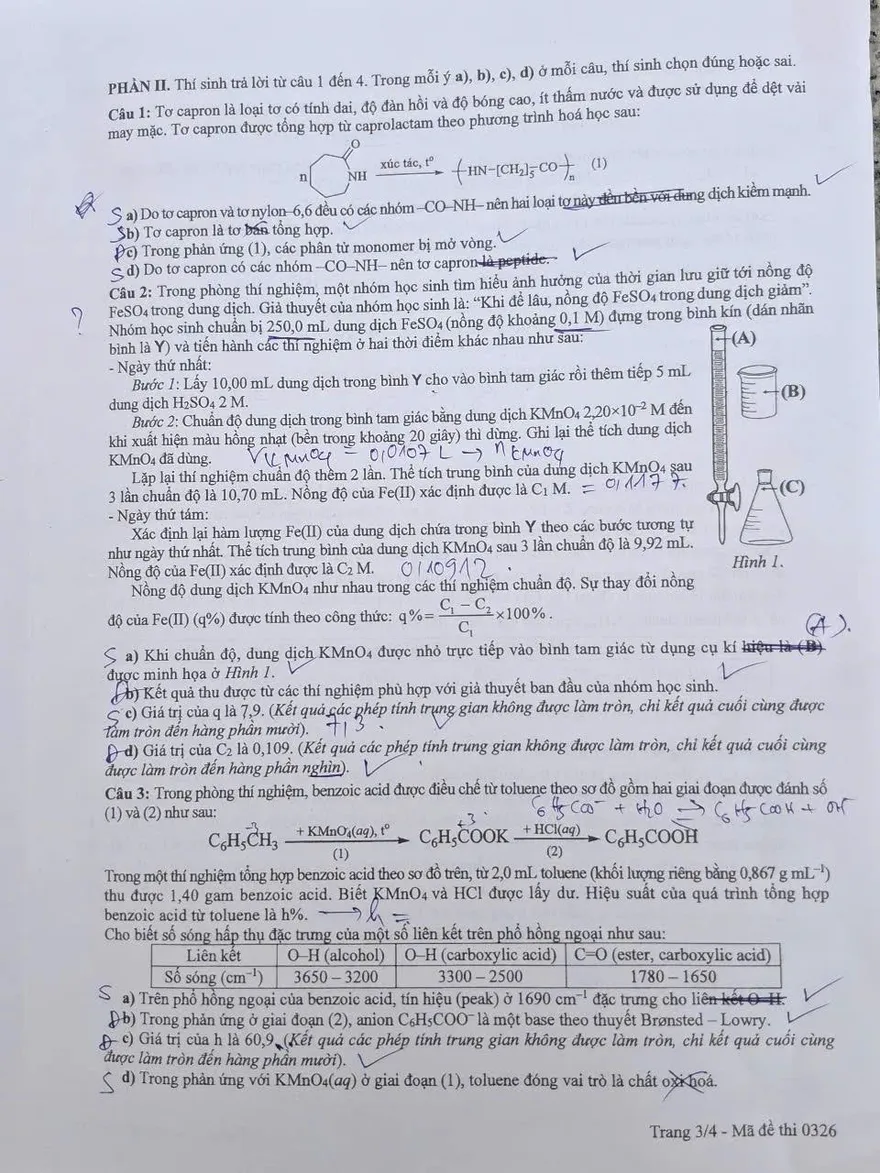 PHẦN II. Thí sinh trả lời từ câu 1 đến 4. Trong mỗi ý a), b), c), d) ở mỗi câu, thí sinh chọn đúng hoặc sai.
Câu 1: Tơ capron là loại tơ có tính dai, độ đàn hồi và độ bóng cao, ít thấm nước và được sử dụng để dệt vải
may mặc. Tơ capron được tổng hợp từ caprolactam theo phương trình hoá học sau:
n NH O xúc tác, t° (HN–[CH₂]₅–CO)n (1)
S a) Do tơ capron và tơ nylon–6,6 đều có các nhóm –CO–NH– nên hai loại tơ này đều bền với dung dịch kiềm mạnh.
S b) Tơ capron là tơ bán tổng hợp.
Đ c) Trong phản ứng (1), các phân tử monomer bị mở vòng.
S d) Do tơ capron có các nhóm –CO–NH– nên tơ capron là peptide.
? Câu 2: Trong phòng thí nghiệm, một nhóm học sinh tìm hiểu ảnh hưởng của thời gian lưu giữ tới nồng độ
FeSO₄ trong dung dịch. Giả thuyết của nhóm học sinh là: “Khi để lâu, nồng độ FeSO₄ trong dung dịch giảm”.
Nhóm học sinh chuẩn bị 250,0 mL dung dịch FeSO₄ (nồng độ khoảng 0,1 M) đựng trong bình kín (dán nhãn
bình là Y) và tiến hành các thí nghiệm ở hai thời điểm khác nhau như sau:
- Ngày thứ nhất:
Bước 1: Lấy 10,00 mL dung dịch trong bình Y cho vào bình tam giác rồi thêm tiếp 5 mL
dung dịch H₂SO₄ 2 M.
Bước 2: Chuẩn độ dung dịch trong bình tam giác bằng dung dịch KMnO₄ 2,20×10⁻² M đến
khi xuất hiện màu hồng nhạt (bền trong khoảng 20 giây) thì dừng. Ghi lại thể tích dung dịch
KMnO₄ đã dùng. VKMnO₄ = 0,0107 L → nKMnO₄
Lặp lại thí nghiệm chuẩn độ thêm 2 lần. Thể tích trung bình của dung dịch KMnO₄ sau
3 lần chuẩn độ là 10,70 mL. Nồng độ của Fe(II) xác định được là C₁ M. = 0,1177.
- Ngày thứ tám:
Xác định lại hàm lượng Fe(II) của dung dịch chứa trong bình Y theo các bước tương tự
như ngày thứ nhất. Thể tích trung bình của dung dịch KMnO₄ sau 3 lần chuẩn độ là 9,92 mL.
Nồng độ của Fe(II) xác định được là C₂ M. 0,10912.
Nồng độ dung dịch KMnO₄ như nhau trong các thí nghiệm chuẩn độ. Sự thay đổi nồng
độ của Fe(II) (q%) được tính theo công thức: q% = (C₁ – C₂)/C₁ ×100%.
(A)
(B)
(C)
Hình 1.
(A).
S a) Khi chuẩn độ, dung dịch KMnO₄ được nhỏ trực tiếp vào bình tam giác từ dụng cụ kí hiệu là (B)
được minh họa ở Hình 1.
Đ b) Kết quả thu được từ các thí nghiệm phù hợp với giả thuyết ban đầu của nhóm học sinh.
S c) Giá trị của q là 7,9. (Kết quả các phép tính trung gian không được làm tròn, chỉ kết quả cuối cùng được
làm tròn đến hàng phần mười). 7,3.
Đ d) Giá trị của C₂ là 0,109. (Kết quả các phép tính trung gian không được làm tròn, chỉ kết quả cuối cùng
được làm tròn đến hàng phần nghìn).
Câu 3: Trong phòng thí nghiệm, benzoic acid được điều chế từ toluene theo sơ đồ gồm hai giai đoạn được đánh số
(1) và (2) như sau: C₆H₅COO⁻ + H₂O ⇌ C₆H₅COOH + OH⁻
-3 +3
C₆H₅CH₃ + KMnO₄(aq), t° (1) C₆H₅COOK + HCl(aq) (2) C₆H₅COOH
Trong một thí nghiệm tổng hợp benzoic acid theo sơ đồ trên, từ 2,0 mL toluene (khối lượng riêng bằng 0,867 g mL⁻¹)
thu được 1,40 gam benzoic acid. Biết KMnO₄ và HCl được lấy dư. Hiệu suất của quá trình tổng hợp
benzoic acid từ toluene là h%. → h =
Cho biết số sóng hấp thụ đặc trưng của một số liên kết trên phổ hồng ngoại như sau:
Liên kết O–H (alcohol) O–H (carboxylic acid) C=O (ester, carboxylic acid)
Số sóng (cm⁻¹) 3650 – 3200 3300 – 2500 1780 – 1650
S a) Trên phổ hồng ngoại của benzoic acid, tín hiệu (peak) ở 1690 cm⁻¹ đặc trưng cho liên kết O–H.
Đ b) Trong phản ứng ở giai đoạn (2), anion C₆H₅COO⁻ là một base theo thuyết Brønsted – Lowry.
Đ c) Giá trị của h là 60,9. (Kết quả các phép tính trung gian không được làm tròn, chỉ kết quả cuối cùng
được làm tròn đến hàng phần mười).
S d) Trong phản ứng với KMnO₄(aq) ở giai đoạn (1), toluene đóng vai trò là chất oxi hoá.
Trang 3/4 - Mã đề thi 0326